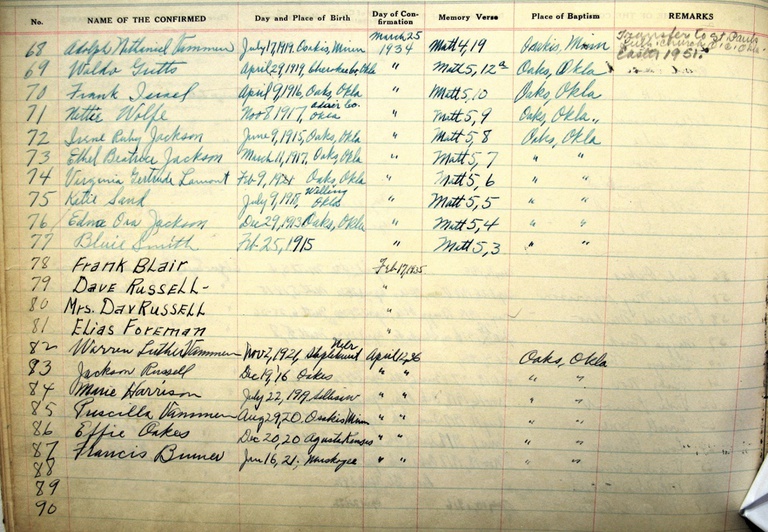 No. NAME OF THE CONFIRMED Day and Place of Birth Day of Con-firmation Memory Verse Place of Baptism REMARKS
68 Adolph Nathaniel Vammen July 17, 1919, Osakis, Minn March 25 1934 Matt 4, 19 Osakis, Minn Transfer to St. Pauls
Easter 1951.
69 Waldo Gritts April 29, 1919, Okla " Matt 5, 12 Oaks, Okla
70 Frank Israel April 9, 1916, Oaks, Okla " Matt 5, 10 Oaks, Okla
71 Nettie Wolfe Nov 8 1917, Adair Co. Okla " Matt 5, 9 Oaks, Okla "
72 Irene Ruby Jackson June 9, 1915, Oaks, Okla " Matt 5, 8 Oaks, Okla
73 Ethel Beatrice Jackson March 11, 1917, Oaks, Okla " Matt 5, 7 " "
74 Virginia Gertrude Lamont Feb 9, Oaks, Okla " Matt 5, 6 " "
75 Katie Sand July 9, Welling Okla " Matt 5, 5 " "
76 Edna Ora Jackson Dec 29, 1913 Oaks, Okla " Matt 5, 4 " "
77 Smith Feb 25, 1915 " Matt 5, 3 " "
78 Frank Blair Feb 17, 1935
79 Dave Russell - "
80 Mrs. Dav Russell "
81 Elias Foreman "
82 Warren Luther Vammen Nov 2, 1921, Nebr April 12, 36 Oaks, Okla
83 Jackson Russell Dec 19, '16 Oakes " " " "
84 Marie Harrison July 22, 1919, Sallisaw " " " "
85 Priscilla Vammen Aug 29, 20, Osakis Minn " " " "
86 Effie Oakes Dec 20, 20 Agusta Kansas " " " "
87 Francis Jan 16, 21, Muskogee " " " "
88
89
90